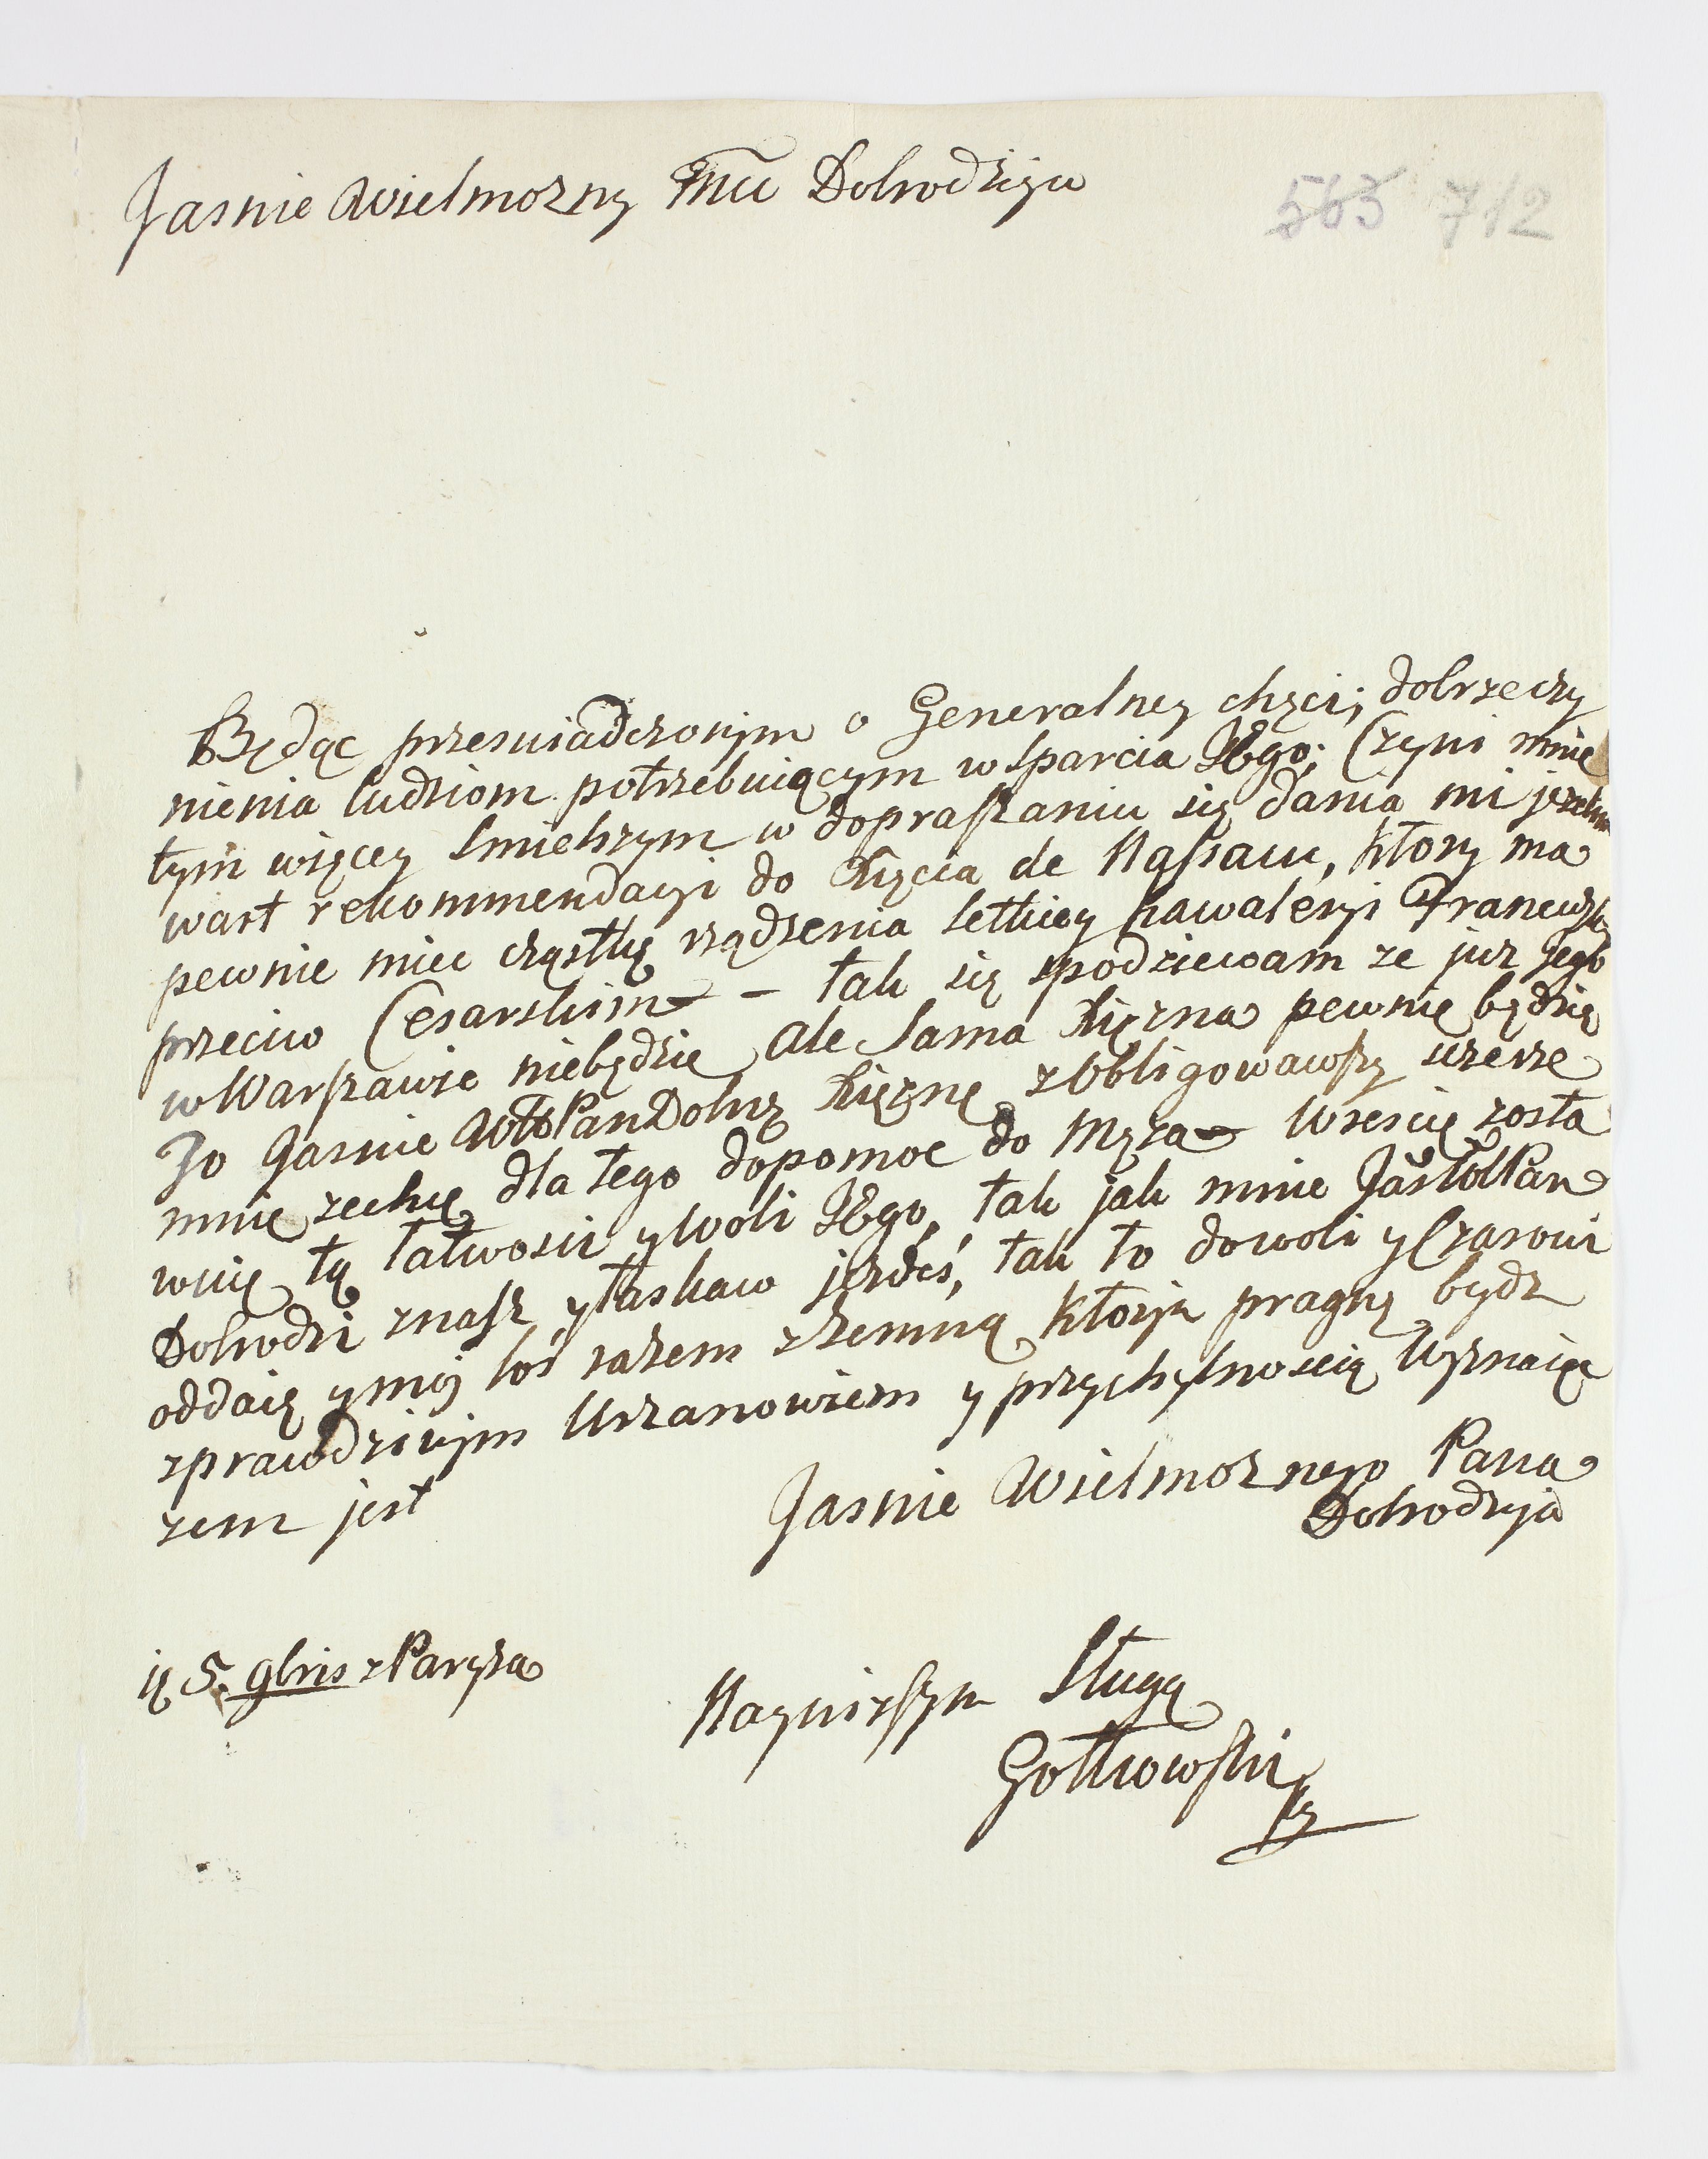 Jasnie Wielmozny Mu Dobrodzieju
563 712
Będąc przeswiadczonym o Generalney chęci, dobrzeczy
nienia ludziom potrzebuiącym wsparcia JEgo; Czyni mnie
tym więcey smielszym w dopraszaniu się dania mi
wart rekommendacyi do Xięcia de Nassau, ktory ma
pewnie miec cząstkę rządzenia letkiey kawaleryi Francuzk
przeciw Cesarskim – tak się spodziewam ze juz jego
w Warszawie niebędzie ale sama Xięzna pewnie będzie
Jo Jasnie WPan Dobrz Xięznę zobligowawszy szerze
mnie zechce dla tego dopomoc do Męza wrescie zosta
wuię tą łatwosci y woli JEgo, tak jak mnie JasWPan
Dobrodzi znasz y łaskaw jezdeś, tak to dowoli y Czasowi
oddaię y mój los razem zemną, ktorym pragnę bydz
zprawdziwym Uszanowaniem y przychylnoscią Wyznaiąc
zem jest
Jasnie Wielmoznego Pana
Dobrodzieja
5. 9bris z Paryza
Nayniższym Sługą
Gotkowski